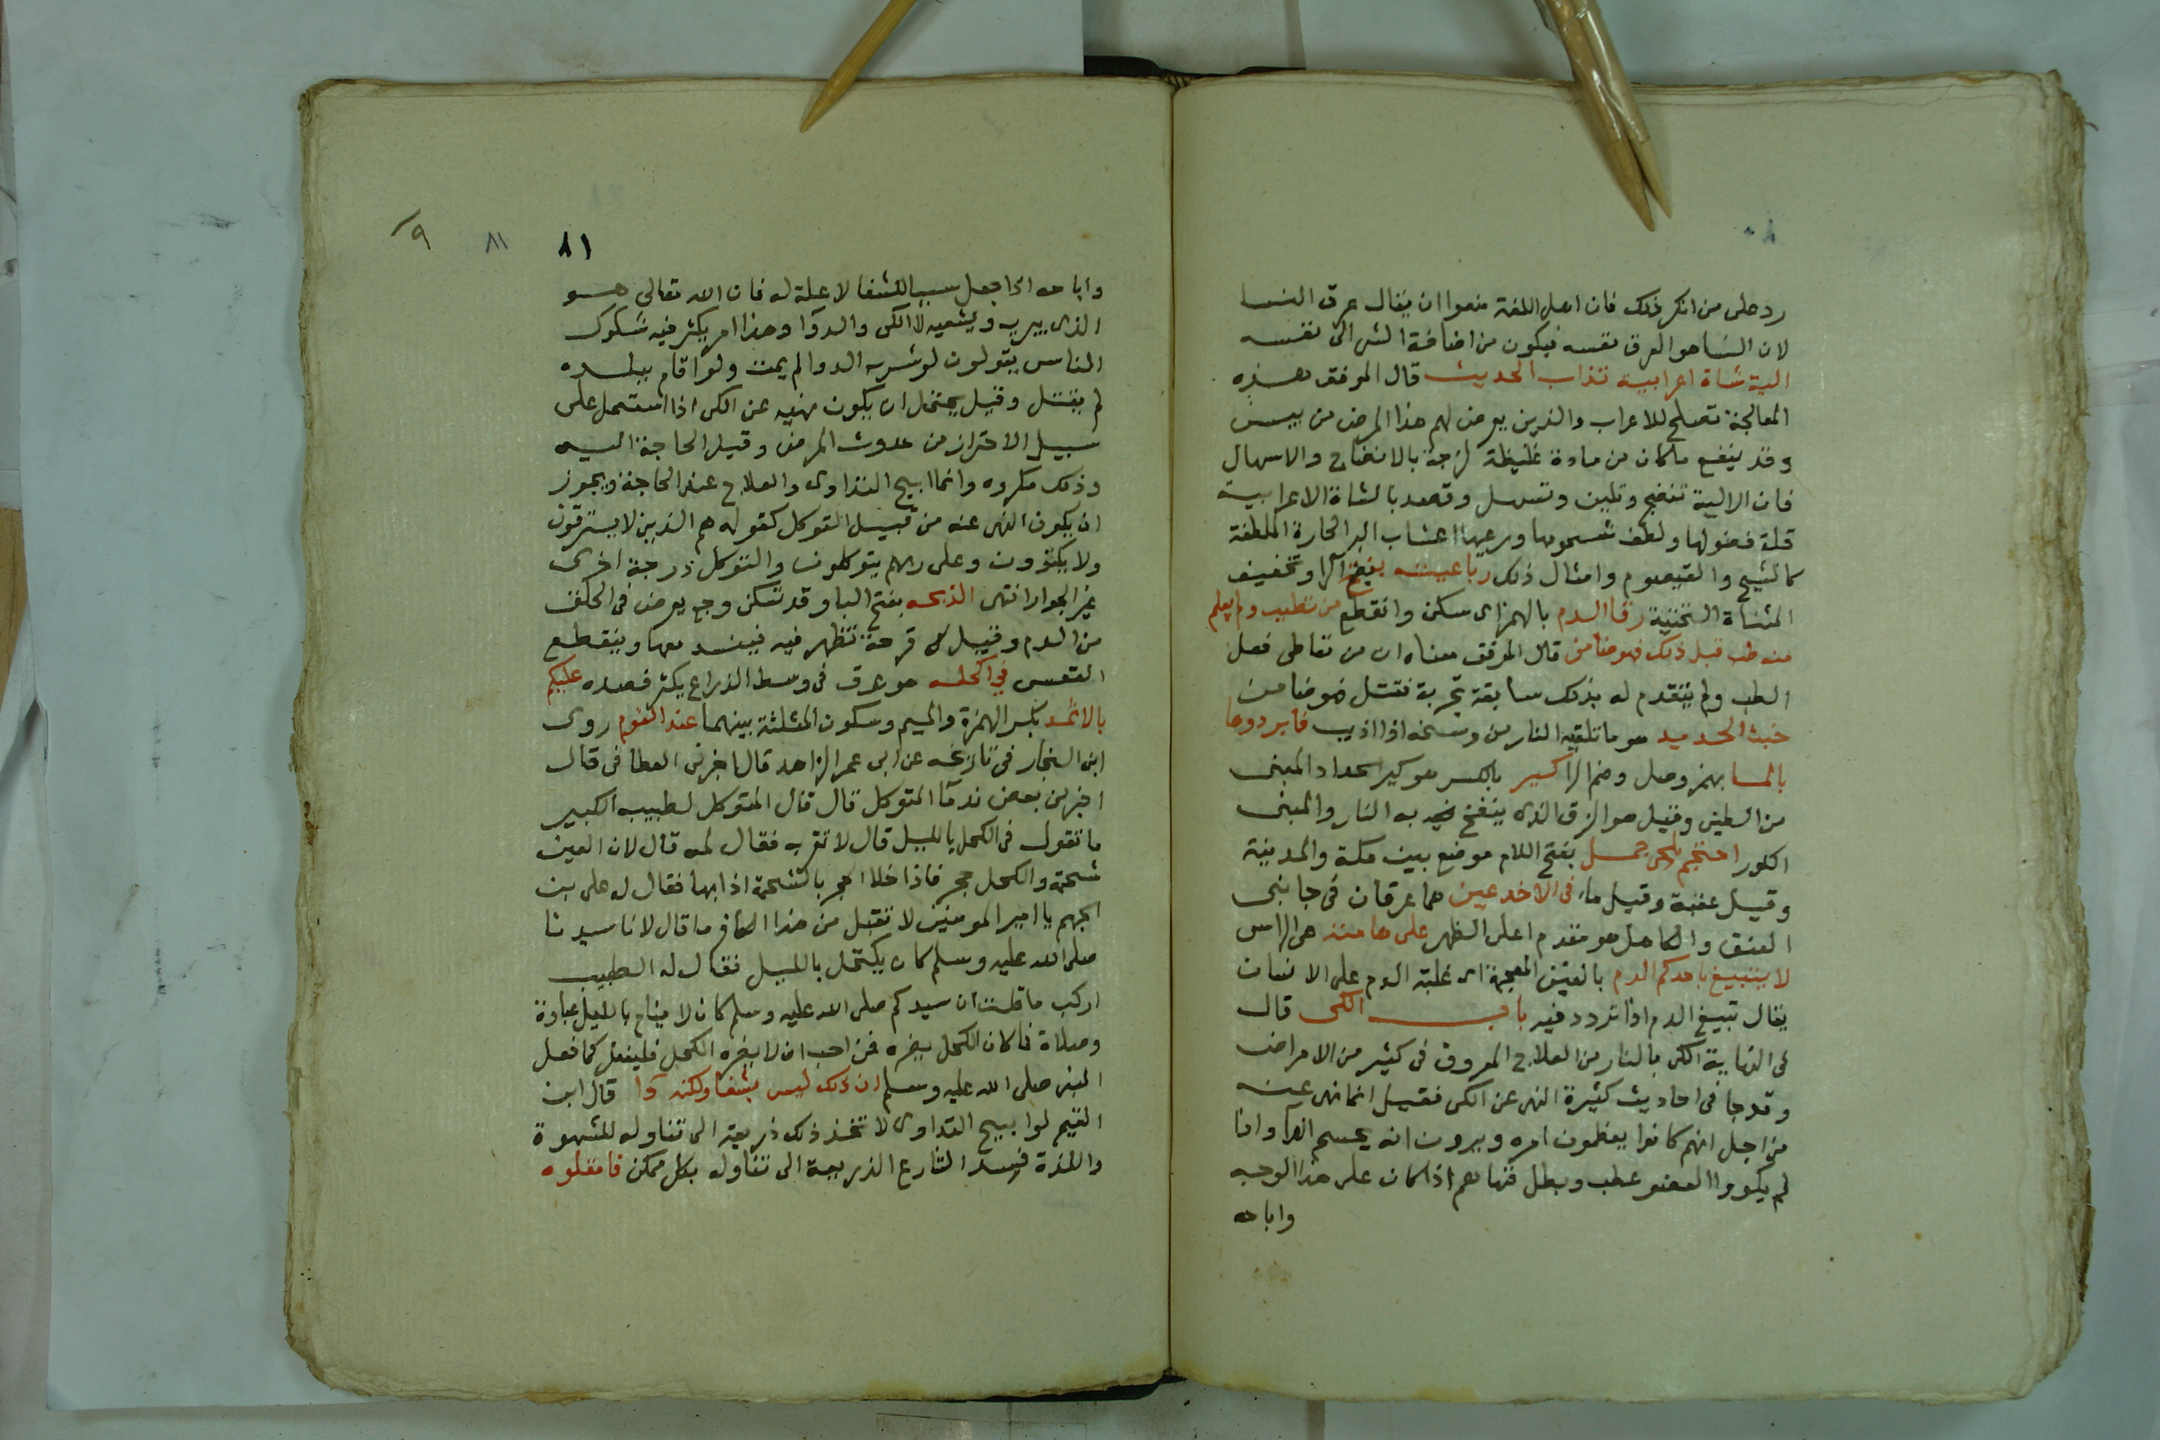 ٨٠
رد على من انكر ذلك فان اهل اللغة منعوا ان يقال عرق النسا
لان النسا هو العرق نفسه فيكون من اضافة الشى الى نفسه
الية شاة اعرابية تذاب الحديث قال الموفق هذه
المعالجة تصلح للاعراب والذين يعرض لهم هذا المرض من يبس
وقد ينفع ما كان من مادة غليظة لزجة بالانضاج والاسهال
فان الالية تنضج وتلين وتسهل وقصد بالشاة الاعرابية
قلة فضولها ولطف شحومها ورعيها اعشاب البر الحارة الملطفة
كالشيح والقيصوم وامثال ذلك رباعيته بفتح الرا وتخفيف
المثناة التحتية رقا الدم بالهمز اى سكن وانقطع من تطبب ولم يعلم
منه طب قبل ذلك فهو ضامن قال الموفق معناه ان من تعاطى فعل
الطب ولم يتقدم له بذلك سابقة تجربة فقتل فهو ضامن
خبث الحديد هو ما تلقيه النار من وسخه اذا اذيب فابردوها
بالما بهمز وصل وضم الرا كير بالكسر هو كير الحداد المبنى
من الطين وقيل هو الزق الذى ينفخ به النار والمبنى
الكور احتجم بلحى جمل بفتح اللام موضع بين مكة والمدينة
وقيل عقبة وقيل ماء فى الاخدعين هما عرقان فى جانبى
العنق والكاهل هو مقدم اعلى الظهر على هامته هى الراس
لا يتبيغ باحدكم الدم بالغين المعجمة اى غلبة الدم على الانسان
يقال تبيغ الدم اذا تردد فيه باب الكى قال
فى النهاية الكى بالنار من العلاج المعروف فى كثير من الامراض
وقد جا فى احاديث كثيرة النهى عن الكى فقيل انما نهى عنه
من اجل انهم كانوا يعظمون امره ويرون انه يحسم الدا واذا
لم يكووا العضو عطب وبطل فنهاهم اذا كان على هذا الوجه
واباحه
٩
٨١
٨١
واباحه اذا جعل سببا للشفا لا علة له فان الله تعالى هو
الذى يبريه ويشفيه لا الكى والدوا وهذا امر يكثر فيه شكوك
الناس يقولون لو شرب الدوا لم يمت ولو اقام ببلده
لم يقتل وقيل يحتمل ان يكون نهيه عن الكى اذا استعمل على
سبيل الاحتراز من حدوث المرض وقبل الحاجة اليه
وذلك مكروه وانما ابيح التداوى والعلاج عند الحاجة ويجوز
ان يكون النهى عنه من قبيل التوكل كقوله هم الذين لا يسترقون
ولا يكتوون وعلى ربهم يتوكلون والتوكل درجة اخرى
غير الجواز انتهى الذبحه بفتح البا وقد تسكن وجع يعرض فى الحلق
من الدم وقيل قرحة تظهر فيه فينسد معها وينقطع
النفس فى اكحله هو عرق فى وسط الذراع يكثر فصده عليكم
بالاثمد بكسر الهمزة والميم وسكون المثلثة بينهما عند النوم روى
ابن النجار فى تاريخه عن ابى عمر الزاهد قال اخبرنى العطافى قال
اخبرنى بعض ندما المتوكل قال قال المتوكل لطبيبه الكبير
ما تقول فى الكحل بالليل قال لا تقربه فقال لمه قال لان العين
شحمة والكحل حجر فاذا خلا الحجر بالشحمة اذابها فقال له على بن
الجهم يا امير المومنين لا تقبل من هذا الكافر ما قال لانا سيدنا
صلى الله عليه وسلم كان يكتحل بالليل فقال له الطبيب
اركب ما قلت ان سيدكم صلى الله عليه وسلم كان لا ينام بالليل عبادة
وصلاة فما كان الكحل يضره فمن احب ان لا يضره الكحل فليفعل كما فعل
النبى صلى الله عليه وسلم ان ذلك ليس بشفا ولكنه دا قال ابن
القيم لو ابيح التداوى لا تخذ ذلك ذريعة الى تناوله للشهوة
واللذة فسد الشارع الذريعة الى تناوله بكل ممكن فامقلوه